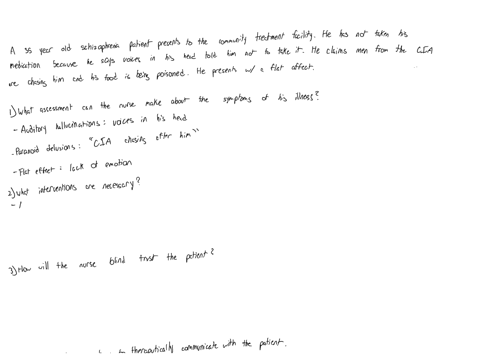 A 35 year old schizophrenic patient presents to the community treatment facility. He has not taken his
medication because he says voices in his head told him not to take it. He claims men from the CIA
are chasing him and his food is being poisoned. He presents w/ a flat affect.
1) What assessment can the nurse make about the symptoms of his illness?
- Auditory hallucinations: voices in his head
- Paranoid delusions: "CIA chasing after him"
- Flat effect: lack of emotion
2) What interventions are necessary?
-
3) How will the nurse blind trust the patient?
to therapeutically communicate with the patient.